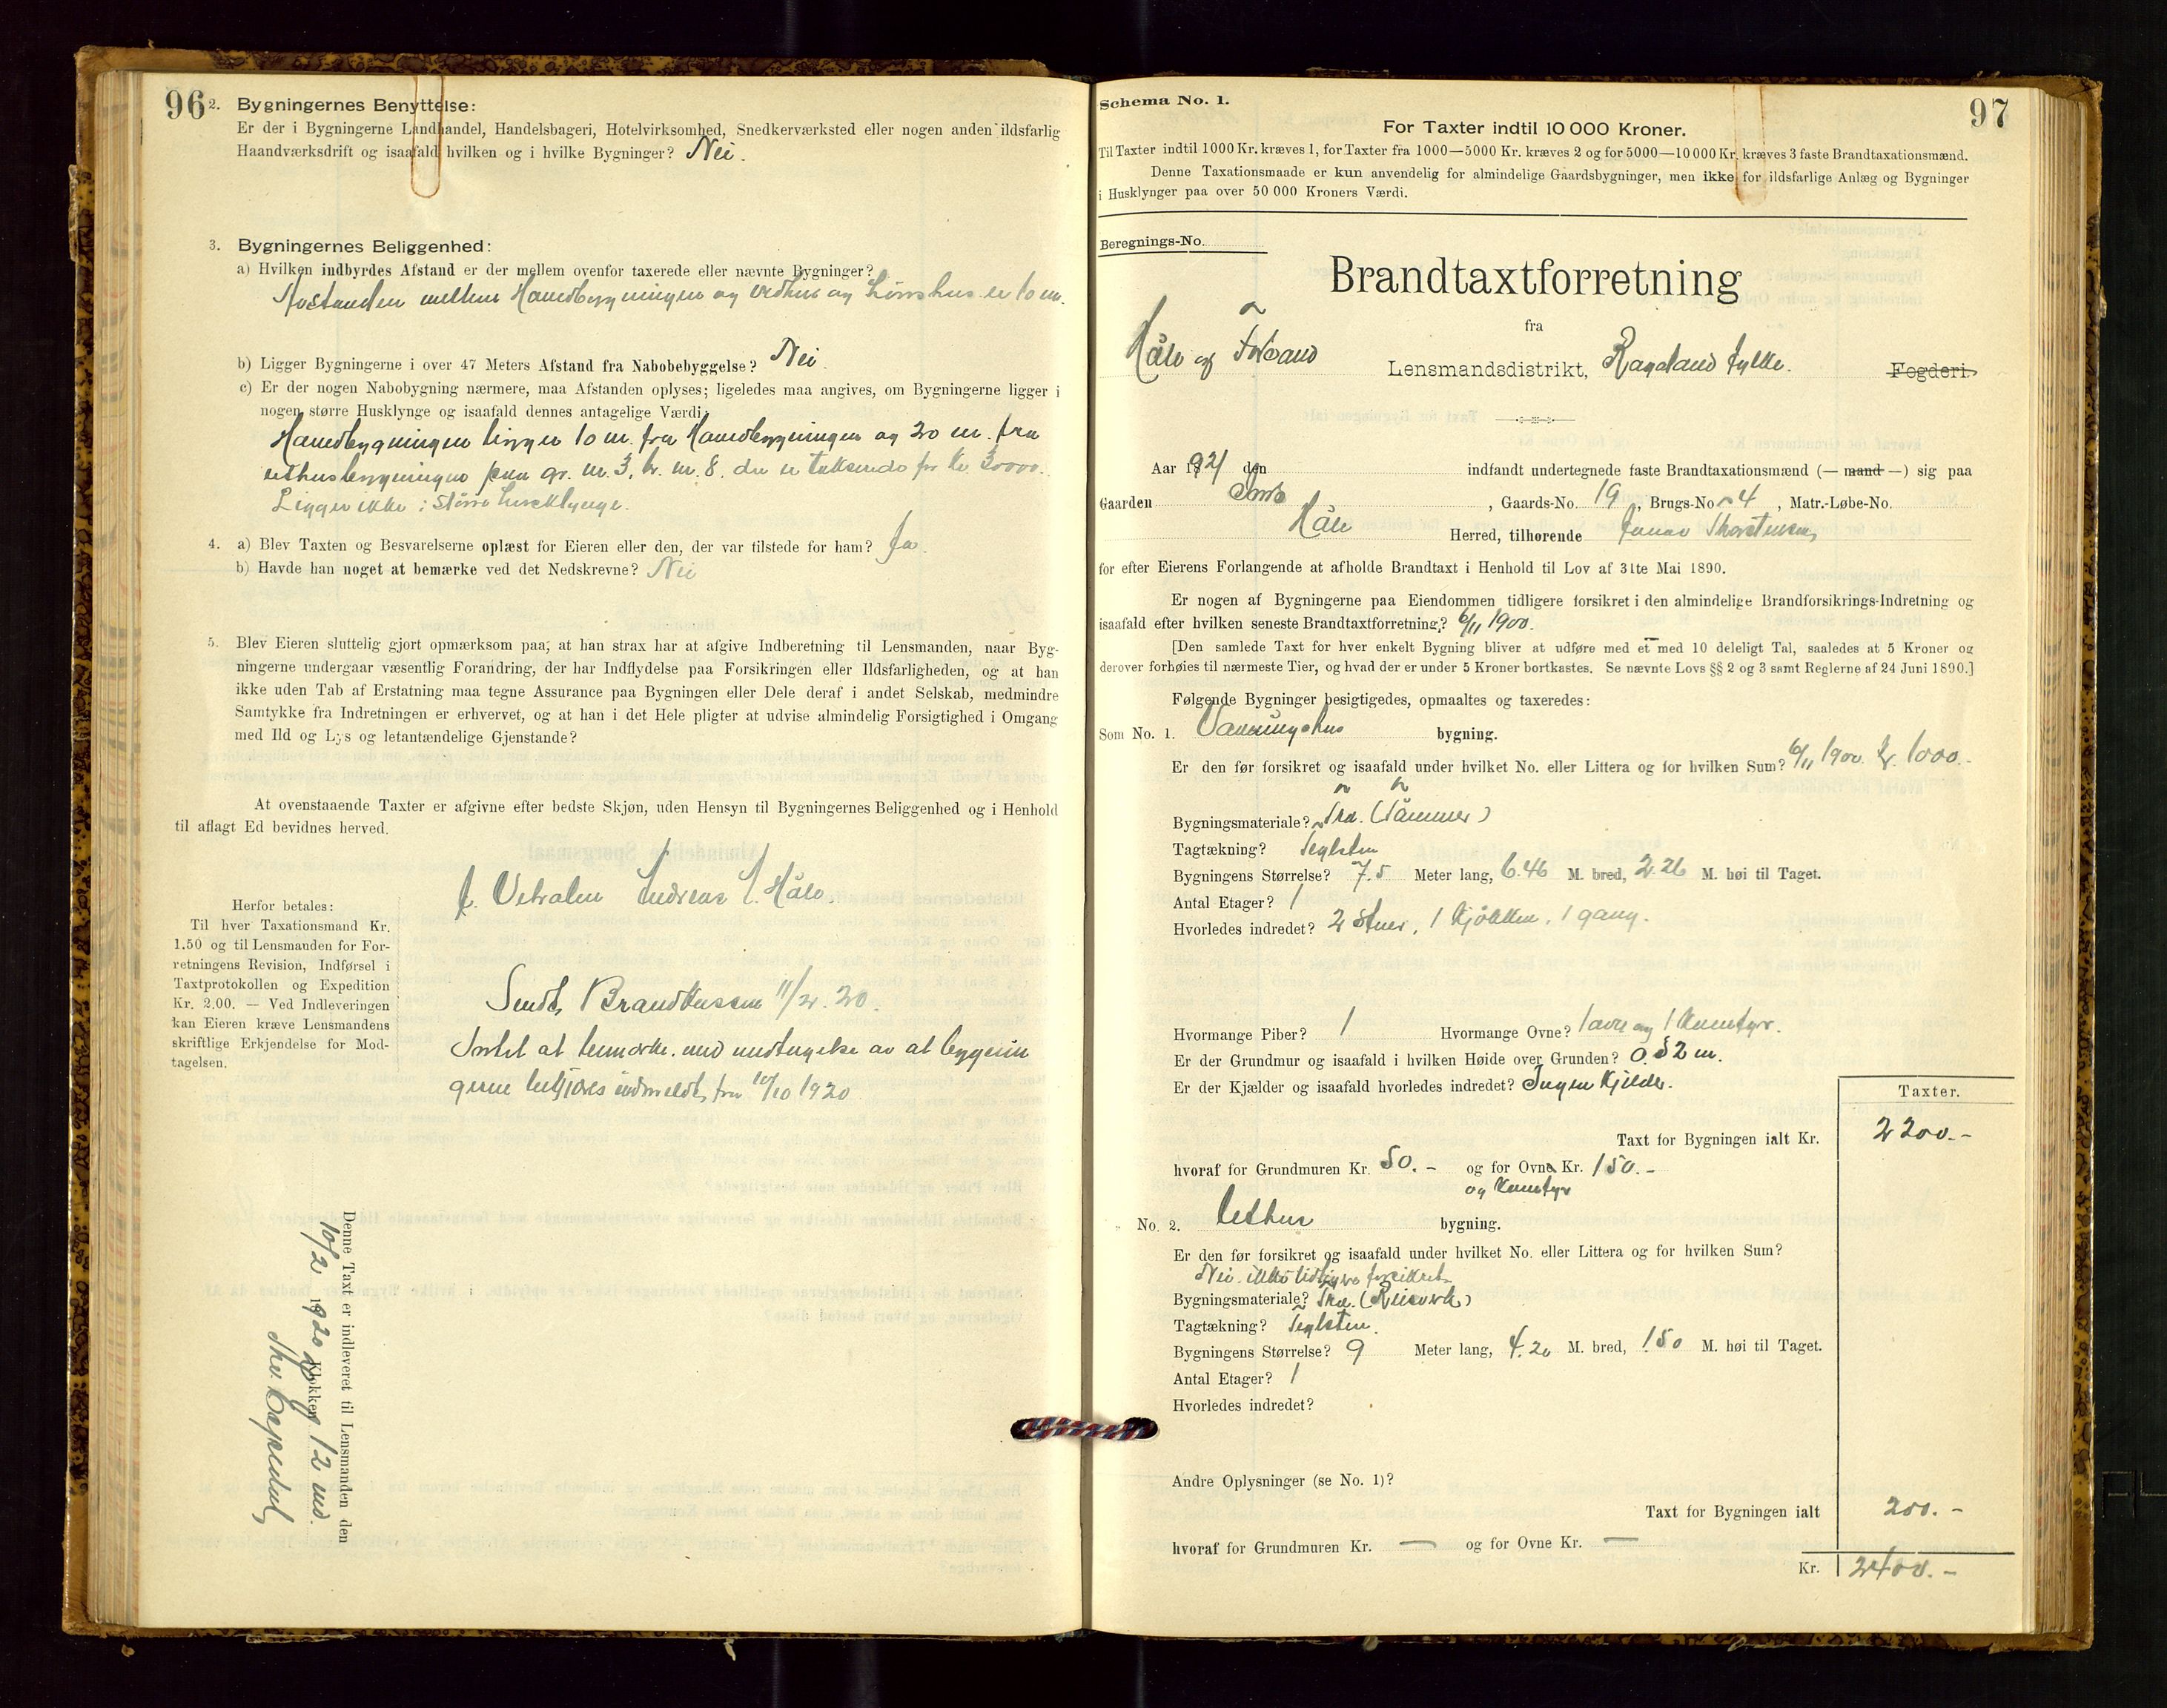 96
2. Bygningernes Benyttelse:
Er der i Bygningerne Landhandel, Handelsbageri, Hotelvirksomhed, Snedkerværksted eller nogen anden ildsfarlig
Haandværksdrift og isaafald hvilken og i hvilke Bygninger? Nei.
3. Bygningernes Beliggenhed:
a) Hvilken indbyrdes Afstand er der mellem ovenfor taxerede eller nævnte Bygninger?
Avstanden mellem Hovedbygningen og vedhus og hønshus er 10 m.
b) Ligger Bygningerne i over 47 Meters Afstand fra Nabobebyggelse? Nei.
c) Er der nogen Nabobygning nærmere, maa Afstanden oplyses; ligeledes maa angives, om Bygningerne ligger i
nogen større Husklynge og isaafald dennes antagelige Værdi:
Hovedbygningen ligger 10 m. fra Hovedbygningen og 20 m. fra
uthusbygningen paa gr. nr. 3, br. nr. 8. der er takserede for kr. 30000.
Ligger ikke i større husklynge.
4. a) Blev Taxten og Besvarelserne oplæst for Eieren eller den, der var tilstede for ham? Ja.
b) Havde han noget at bemærke ved det Nedskrevne? Nei
5. Blev Eieren sluttelig gjort opmærksom paa, at han strax har at afgive Indberetning til Lensmanden, naar Byg-
ningerne undergaar væsentlig Forandring, der har Indflydelse paa Forsikringen eller Ildsfarligheden, og at han
ikke uden Tab af Erstatning maa tegne Assurance paa Bygningen eller Dele deraf i andet Selskab, medmindre
Samtykke fra Indretningen er erhvervet, og at han i det Hele pligter at udvise almindelig Forsigtighed i Omgang
med Ild og Lys og letantændelige Gjenstande?
At ovenstaaende Taxter er afgivne efter bedste Skjøn, uden Hensyn til Bygningernes Beliggenhed og i Henhold
til aflagt Ed bevidnes herved.
Andreas Håle.
Herfor betales:
Til hver Taxationsmand Kr.
1.50 og til Lensmanden for For-
retningens Revision, Indførsel i
Taxtprotokollen og Expedition
Kr. 2.00. — Ved Indleveringen
kan Eieren kræve Lensmandens
skriftlige Erkjendelse for Mod-
tagelsen.
Sendt Brandkassen 11/2. 20.
Intet at bemerke. med undtagelse av at bygnin
gerne indmeldt fra 10/10 1920
Denne Taxt er indleveret til Lensmanden den
10/2 1920 Klokken 12 md.
97
Schema No. 1.
For Taxter indtil 10 000 Kroner.
Til Taxter indtil 1000 Kr. kræves 1, for Taxter fra 1000—5000 Kr. kræves 2 og for 5000—10000 Kr. kræves 3 faste Brandtaxationsmænd.
Denne Taxationsmaade er kun anvendelig for almindelige Gaardsbygninger, men ikke for ildsfarlige Anlæg og Bygninger
i Husklynger paa over 50 000 Kroners Værdi.
Beregnings-No.
Brandtaxtforretning
fra
Håle og Forsand Lensmandsdistrikt, Rogaland fylke. Fogderi.
Aar 1921 den indfandt undertegnede faste Brandtaxationsmænd (— mand —) sig paa
Gaarden , Gaards-No. 19, Brugs-No. 4, Matr.-Løbe-No.
Håle Herred, tilhørende Jonas Thorstensen
for efter Eierens Forlangende at afholde Brandtaxt i Henhold til Lov af 31te Mai 1890.
Er nogen af Bygningerne paa Eiendommen tidligere forsikret i den almindelige Brandforsikrings-Indretning og
isaafald efter hvilken seneste Brandtaxtforretning? 6/11 1900.
[Den samlede Taxt for hver enkelt Bygning bliver at udføre med et med 10 deleligt Tal, saaledes at 5 Kroner og
derover forhøies til nærmeste Tier, og hvad der er under 5 Kroner bortkastes. Se nævnte Lovs §§ 2 og 3 samt Reglerne af 24 Juni 1890.]
Følgende Bygninger besigtigedes, opmaaltes og taxeredes:
Som No. 1. Vaaningshus bygning.
Er den før forsikret og isaafald under hvilket No. eller Littera og for hvilken Sum? 6/11 1900. kr. 1000.-
Bygningsmateriale? Træ. (Tømmer)
Tagtækning? Teglsten
Bygningens Størrelse? 7.5 Meter lang, 6.46 M. bred, 2.26 M. høi til Taget.
Antal Etager? 1
Hvorledes indredet? 2 stuer, 1 kjøkken, 1 gang.
Hvormange Piber? 1 Hvormange Ovne? 1 ovn og 1 komfyr.
Er der Grundmur og isaafald i hvilken Høide over Grunden? 0.52 m.
Er der Kjælder og isaafald hvorledes indredet? Ingen Kjelder.
Taxter.
Taxt for Bygningen ialt Kr. 2200.-
hvoraf for Grundmuren Kr. 50.- og for Ovne Kr. 150.-
og komfyr
No. 2. Uthus bygning.
Er den før forsikret og isaafald under hvilket No. eller Littera og for hvilken Sum?
Nei. ikke tidligere forsikret.
Bygningsmateriale? Træ. (Reisverk)
Tagtækning? Teglsten.
Bygningens Størrelse? 9 Meter lang, 4.20 M. bred, 1.50 M. høi til Taget.
Antal Etager? 1
Hvorledes indredet?
Andre Oplysninger (se No. 1)?
Taxt for Bygningen ialt 200.-
hvoraf for Grundmuren Kr. — og for Ovne Kr. —
Kr. 2400.-